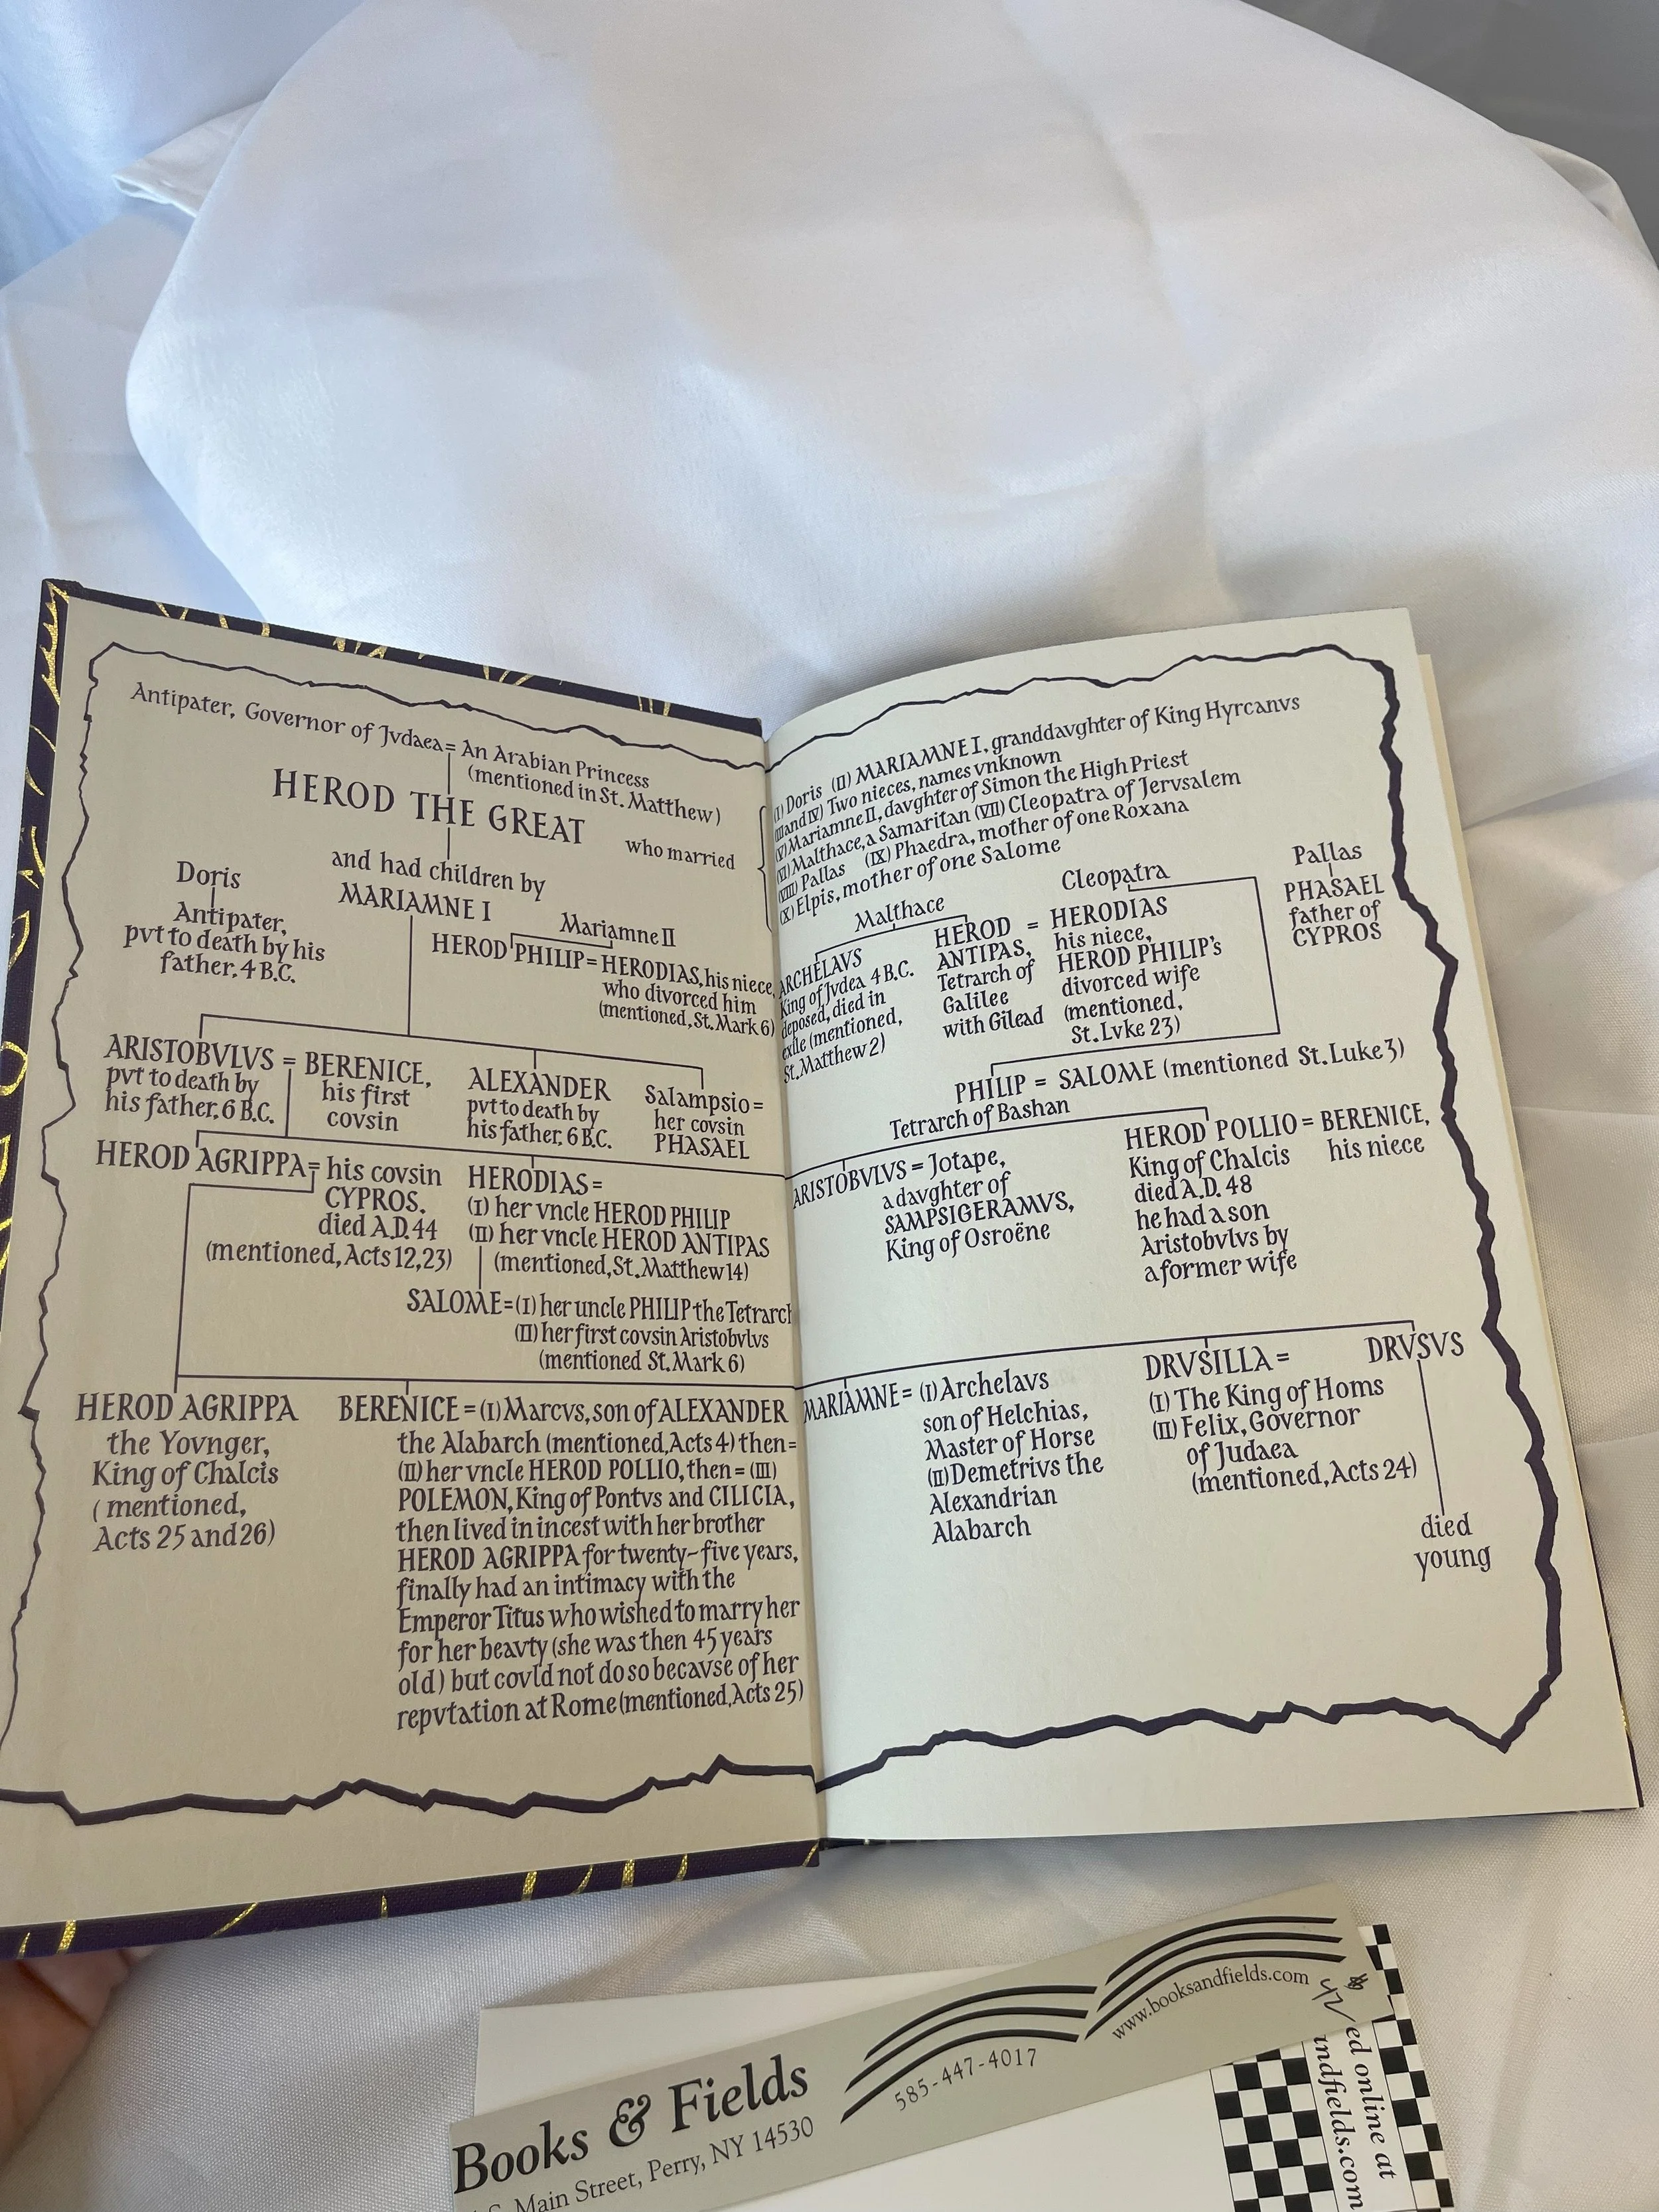 Antipater, Governor of Jvdaea = An Arabian Princess
(mentioned in St. Matthew)
HEROD THE GREAT
who married
and had children by
Doris
Antipater,
pvt to death by his
father, 4 B.C.
MARIAMNE I
Mariamne II
HEROD PHILIP = HERODIAS, his niece,
who divorced him
(mentioned, St. Mark 6)
ARISTOBVLVS = BERENICE,
pvt to death by
his father, 6 B.C.
his first
covsin
ALEXANDER
pvt to death by
his father, 6 B.C.
Salampsio =
her covsin
PHASAEL
HEROD AGRIPPA = his covsin
CYPROS,
died A.D. 44
(mentioned, Acts 12, 23)
HERODIAS =
(I) her vncle HEROD PHILIP
(II) her vncle HEROD ANTIPAS
(mentioned, St. Matthew 14)
SALOME = (I) her uncle PHILIP the Tetrarch
(II) her first covsin Aristobvlvs
(mentioned St. Mark 6)
HEROD AGRIPPA
the Yovnger,
King of Chalcis
(mentioned,
Acts 25 and 26)
BERENICE = (I) Marcvs, son of ALEXANDER
the Alabarch (mentioned, Acts 4) then =
(II) her vncle HEROD POLLIO, then = (III)
POLEMON, King of Pontvs and CILICIA,
then lived in incest with her brother
HEROD AGRIPPA for twenty-five years,
finally had an intimacy with the
Emperor Titus who wished to marry her
for her beavty (she was then 45 years
old) but covld not do so becavse of her
repvtation at Rome (mentioned, Acts 25)
(I) Doris (II) MARIAMNE I, granddavghter of King Hyrcanvs
(III and IV) Two nieces, names vnknown
(V) Mariamne II, davghter of Simon the High Priest
(VI) Malthace, a Samaritan (VII) Cleopatra of Jervsalem
(VIII) Pallas (IX) Phaedra, mother of one Roxana
(X) Elpis, mother of one Salome
Malthace
Cleopatra
Pallas
PHASAEL
father of
CYPROS
ARCHELAVS
King of Jvdea 4 B.C.
deposed, died in
exile (mentioned,
St. Matthew 2)
HEROD = HERODIAS
ANTIPAS,
Tetrarch of
Galilee
with Gilead
his niece,
HEROD PHILIP's
divorced wife
(mentioned,
St. Lvke 23)
PHILIP = SALOME (mentioned St. Luke 3)
Tetrarch of Bashan
ARISTOBVLVS = Jotape,
a davghter of
SAMPSIGERAMVS,
King of Osroëne
HEROD POLLIO = BERENICE,
his niece
King of Chalcis
died A.D. 48
he had a son
Aristobvlvs by
a former wife
MARIAMNE = (I) Archelavs
son of Helchias,
Master of Horse
(II) Demetrivs the
Alexandrian
Alabarch
DRVSILLA =
(I) The King of Homs
(II) Felix, Governor
of Judaea
(mentioned, Acts 24)
DRVSVS
died
young
Books & Fields
Main Street, Perry, NY 14530
585-447-4017
www.booksandfields.com
online at